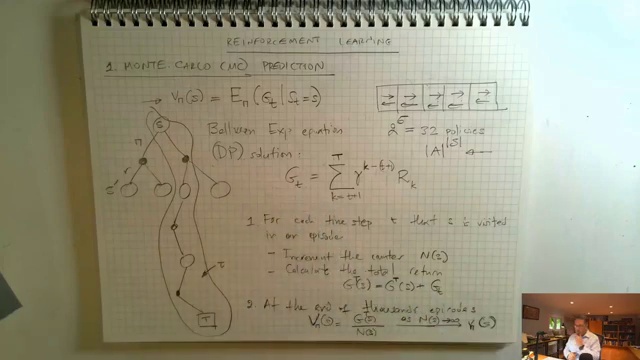 REINFORCEMENT LEARNING
1. MONTE-CARLO (MC) PREDICTION
→ V_π(s) = E_π(G_t | S_t = s)
Bellman Exp equation
2^5 = 32 policies
(DP) solution:
|A|^|S| ←
G_t = Σ_{k=t+1}^{T} γ^{k-(t+1)} R_k
S
π
r
s'
τ
T
1 For each time step t that s is visited
in an episode
- Increment the counter N(s)
- Calculate the total return
G^T(s) = G^T(s) + G_t
2. At the end of 1 thousands episodes
V_π(s) = G(s) / N(s) as N(s) → ∞ V_π(s)